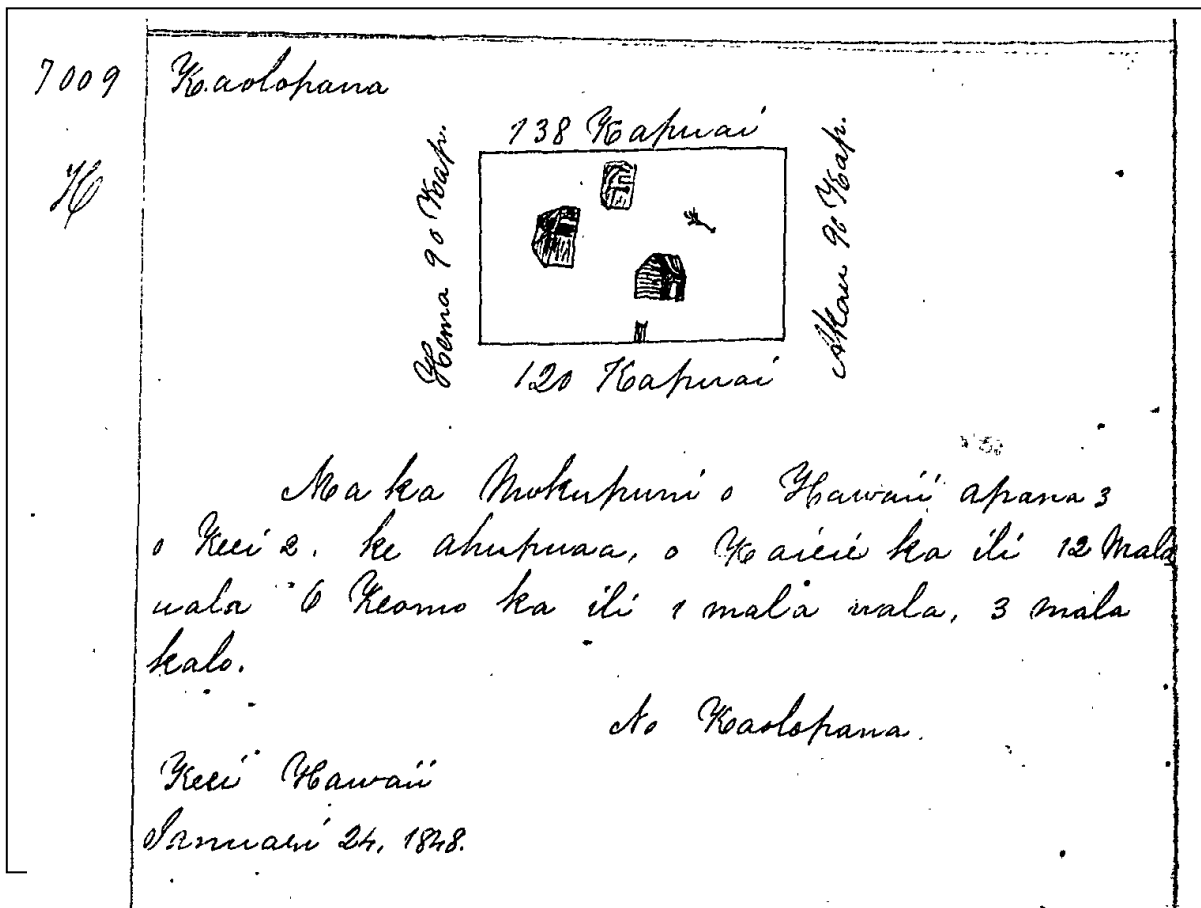 7009 Kaolopana
H
138 Kapuai
Hema 90 Kap.
Akau 90 Kap.
120 Kapuai
Ma ka Mokupuni o Hawaii apana 3
o Keei 2. ke ahupuaa, o Kaieie ka ili 12 Mala
uala O Keomo ka ili 1 mala uala, 3 mala
kalo.
No Kaolopana.
Keei Hawaii
Ianuali 24, 1848.